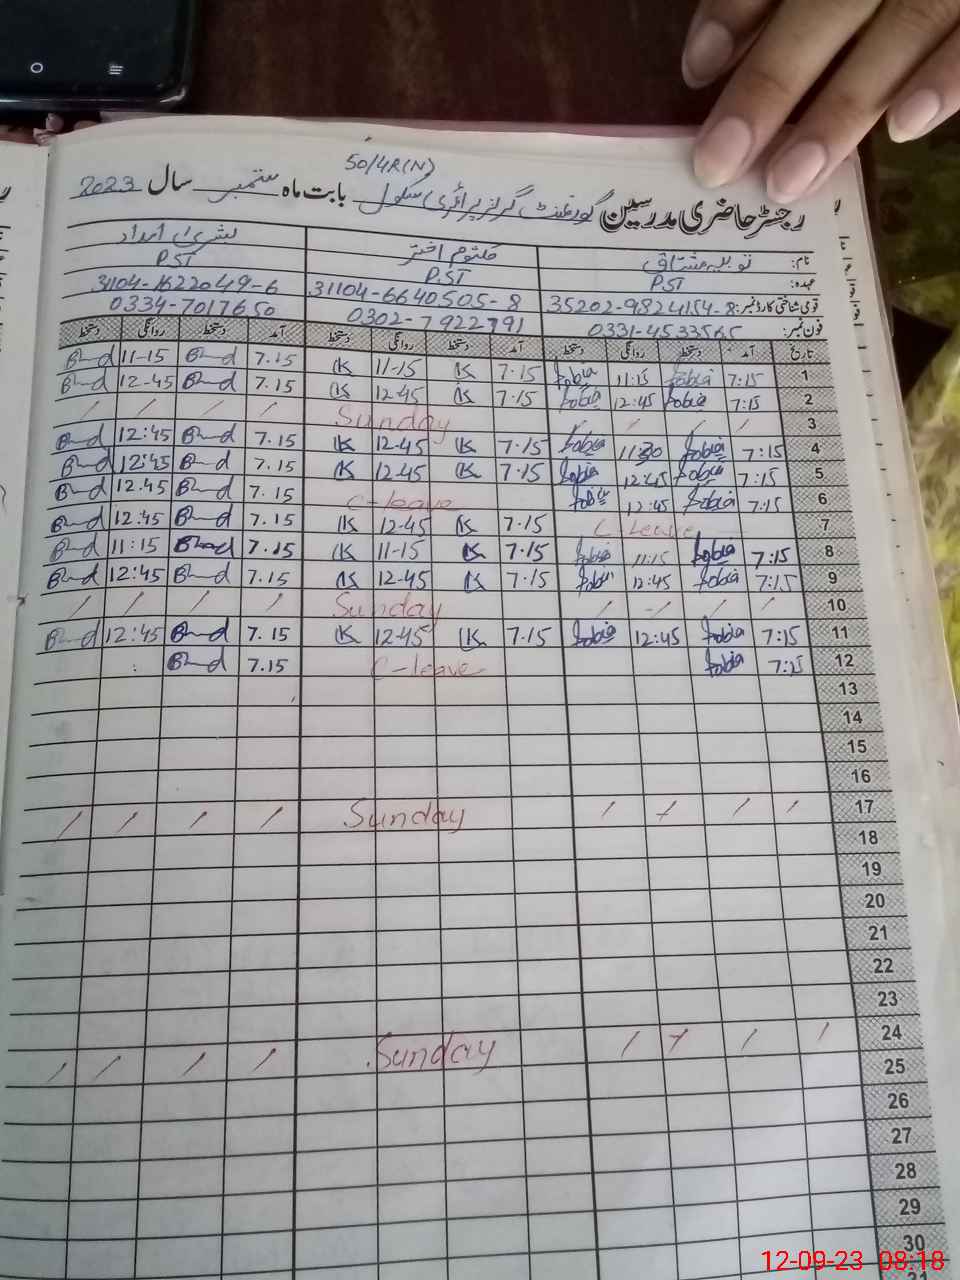 50/4R(N)
رجسٹر حاضری مدرسین گورنمنٹ گرلز پرائمری سکول بابت ماہ ستمبر سال 2023
نام: ثوبیہ مشتاق کلثوم اختر بشریٰ امداد
عہدہ: PST PST PST
قومی شناختی کارڈ نمبر: 35202-9824154-8 31104-6640505-8 31104-1622049-6
فون نمبر: 0331-4533565 0302-7922791 0334-7017650
تاریخ آمد دستخط روانگی دستخط آمد دستخط روانگی دستخط آمد دستخط روانگی دستخط
1 7:15 Sobia 11:15 Sobia 7.15 K 11-15 K 7.15 11-15
2 7:15 Sobia 12:45 Sobia 7.15 K 12-45 K 7.15 12-45
3 / / / / Sunday / / / /
4 7:15 Sobia 11:30 Sobia 7.15 K 12-45 K 7.15 12:45
5 7:15 Sobia 12:45 Sobia 7.15 K 12-45 K 7.15 12:45
6 7:15 Sobia 12:45 Sobia C-leave 7.15 12.45
7 C-Leave 7.15 K 12-45 K 7.15 12:45
8 7:15 Sobia 11:15 Sobia 7.15 K 11-15 K 7.15 11:15
9 7:15 Sobia 12:45 Sobia 7.15 K 12-45 K 7.15 12:45
10 / / / / Sunday / / / /
11 7:15 Sobia 12:45 Sobia 7.15 K 12-45 K 7.15 12:45
12 7:15 Sobia C-leave 7.15
13
14
15
16
17 / / / / Sunday / / / /
18
19
20
21
22
23
24 / / / / Sunday / / / /
25
26
27
28
29
30
31
12-09-23 08:18